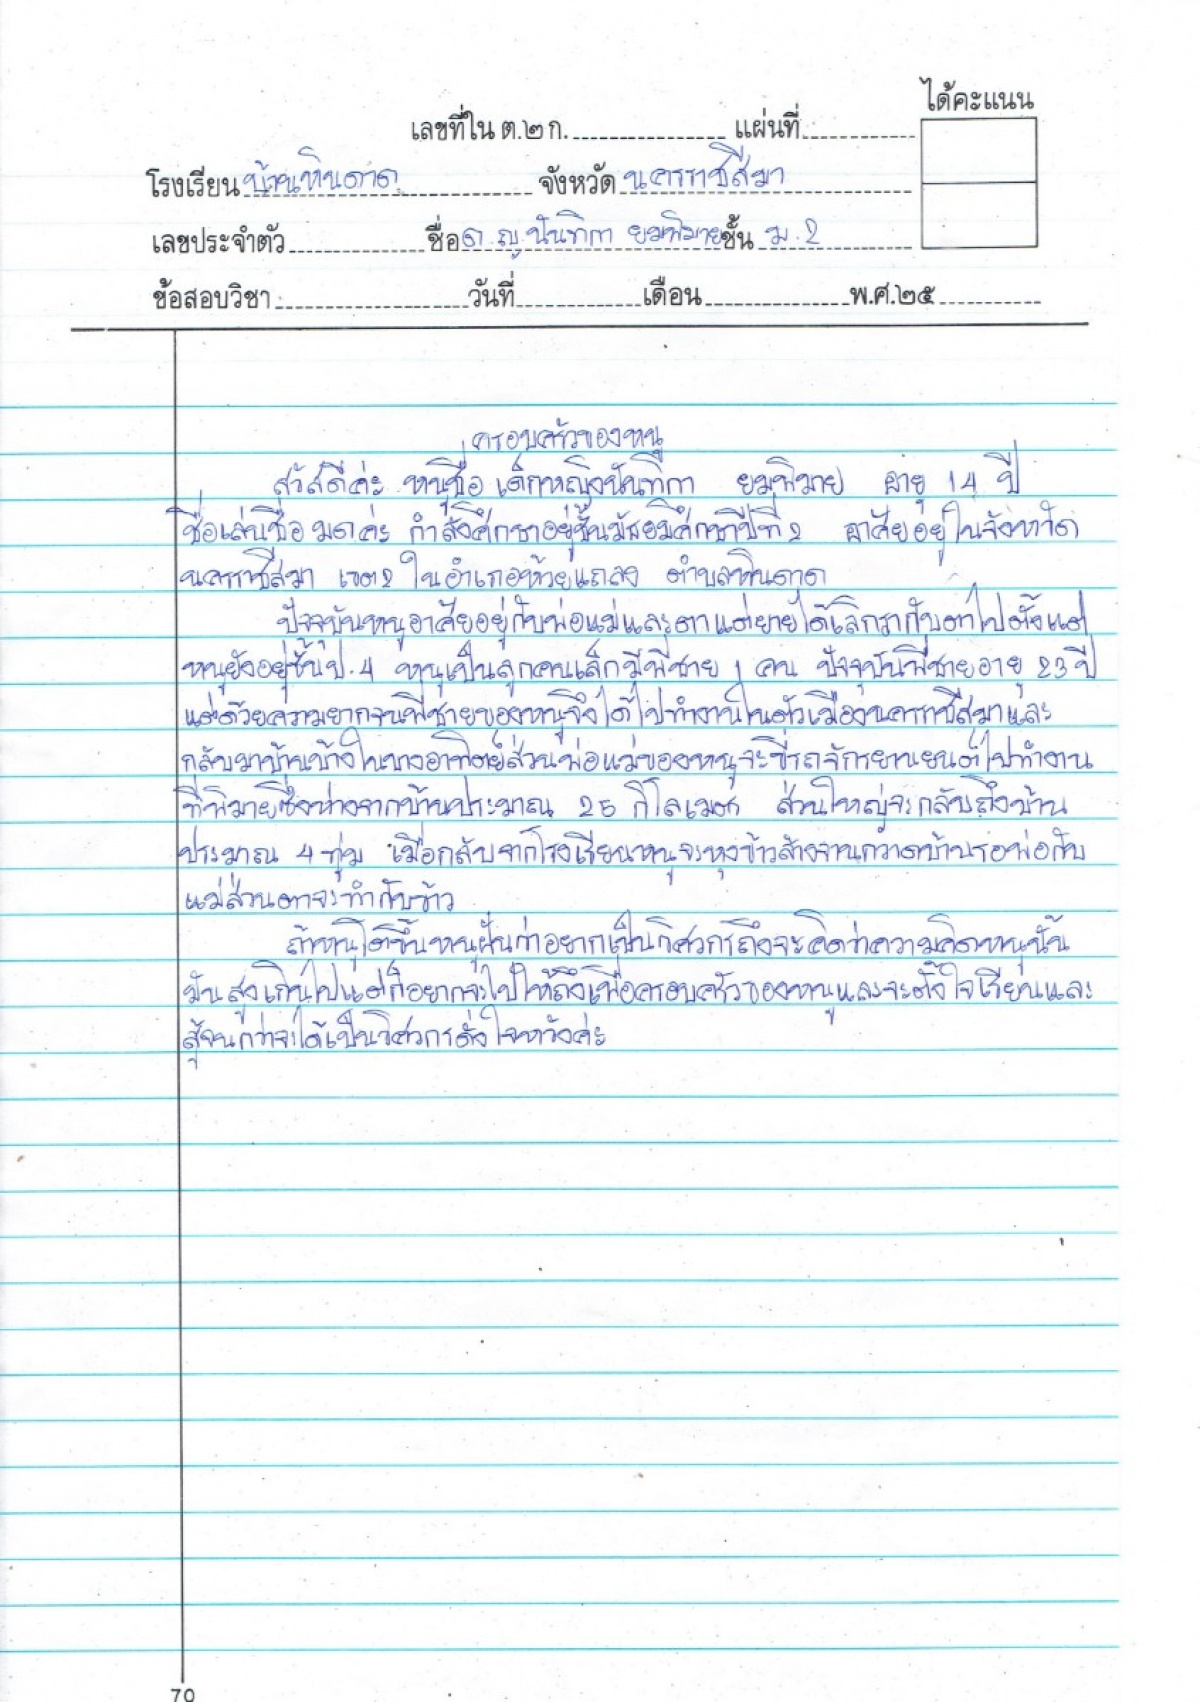 ได้คะแนน
เลขที่ใน ต.๒ ก. แผ่นที่
โรงเรียน บ้านหินดาด จังหวัด นครราชสีมา
เลขประจำตัว ชื่อ ด.ญ นันทิกา ยมพิมาย ชั้น ม.2
ข้อสอบวิชา วันที่ เดือน พ.ศ.๒๕
ครอบครัวของหนู
สวัสดีค่ะ หนูชื่อ เด็กหญิงนันทิกา ยมพิมาย อายุ 14 ปี
ชื่อเล่นชื่อ มดค่ะ กำลังศึกษาอยู่ชั้นมัธยมศึกษาปีที่ 2 อาศัยอยู่ในจังหวัด
นครราชสีมา เขต2 ในอำเภอห้วยแถลง ตำบลหินดาด
ปัจจุบันหนูอาศัยอยู่กับพ่อแม่และตาแต่ยายได้เลิกรากับตาไปตั้งแต่
หนูยังอยู่ชั้นป.4 หนูเป็นลูกคนเล็กมีพี่ชาย 1 คน ปัจจุบันพี่ชายอายุ 23 ปี
แต่ด้วยความยากจนพี่ชายของหนูจึงได้ไปทำงานในตัวเมืองนครราชสีมาและ
กลับมาบ้านบ้างในบางอาทิตย์ส่วนพ่อแม่ของหนูจะขี่รถจักรยานยนต์ไปทำงาน
ที่พิมายซึ่งห่างจากบ้านประมาณ 25 กิโลเมตร ส่วนใหญ่จะกลับถึงบ้าน
ประมาณ 4 ทุ่ม เมื่อกลับจากโรงเรียนหนูจะหุงข้าวล้างจานกวาดบ้านรอพ่อกับ
แม่ส่วนตาจะทำกับข้าว
ถ้าหนูโตขึ้นหนูฝันว่าอยากเป็นวิศวกรถึงจะคิดว่าความคิดหนูนั้น
มันสูงเกินไปแต่ก็อยากจะไปให้ถึงเพื่อครอบครัวของหนูและจะตั้งใจเรียนและ
สู้จนกว่าจะได้เป็นวิศวกรดั่งใจหวังค่ะ
70